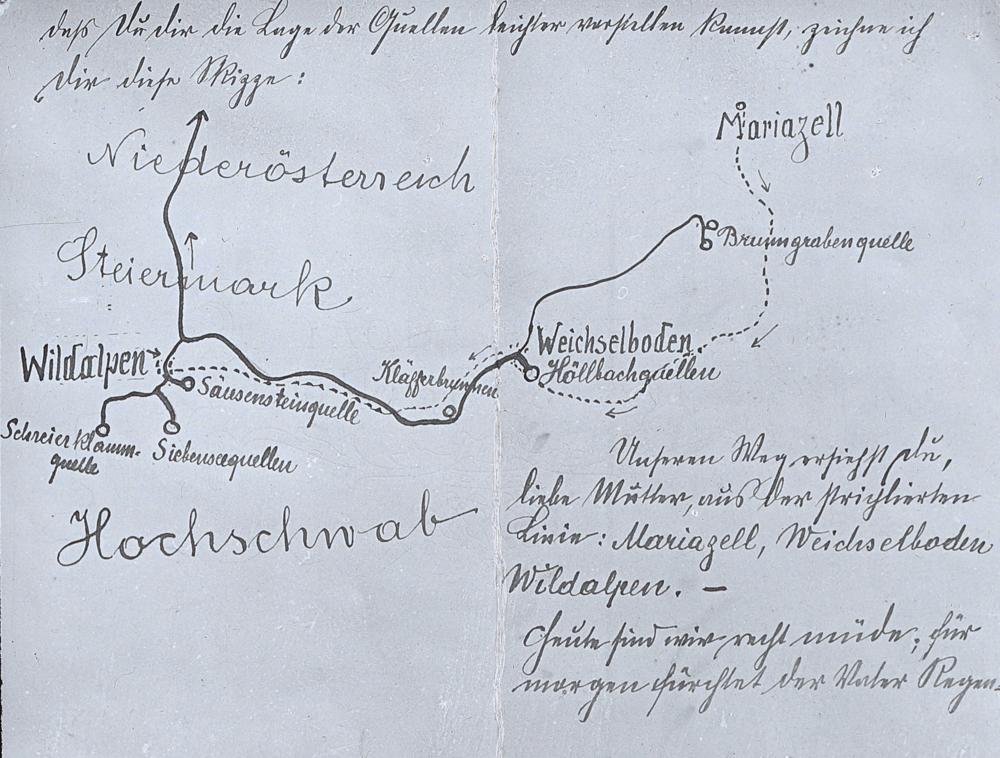 daß Du dir die Lage der Quellen leichter vorstellen kannst, zeichne ich
Dir diese Skizze:
Mariazell
Niederösterreich
Brunngrabenquelle
Steiermark
Weichselboden
Wildalpen
Kläfferbrunnen
Höllbachquellen
Säusensteinquelle
Schreierklamm-
quelle
Siebenseequellen
Hochschwab
Unseren Weg ersiehst Du,
liebe Mutter, aus der strichlierten
Linie: Mariazell, Weichselboden
Wildalpen. —
Heute sind wir recht müde; für
morgen fürchtet der Vater Regen-